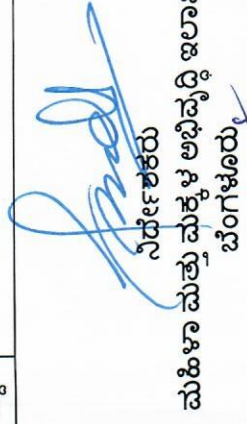 ನಿರ್ದೇಶಕರು
ಮಹಿಳಾ ಮತ್ತು ಮಕ್ಕಳ ಅಭಿವೃದ್ಧಿ
ಬೆಂಗಳೂರು